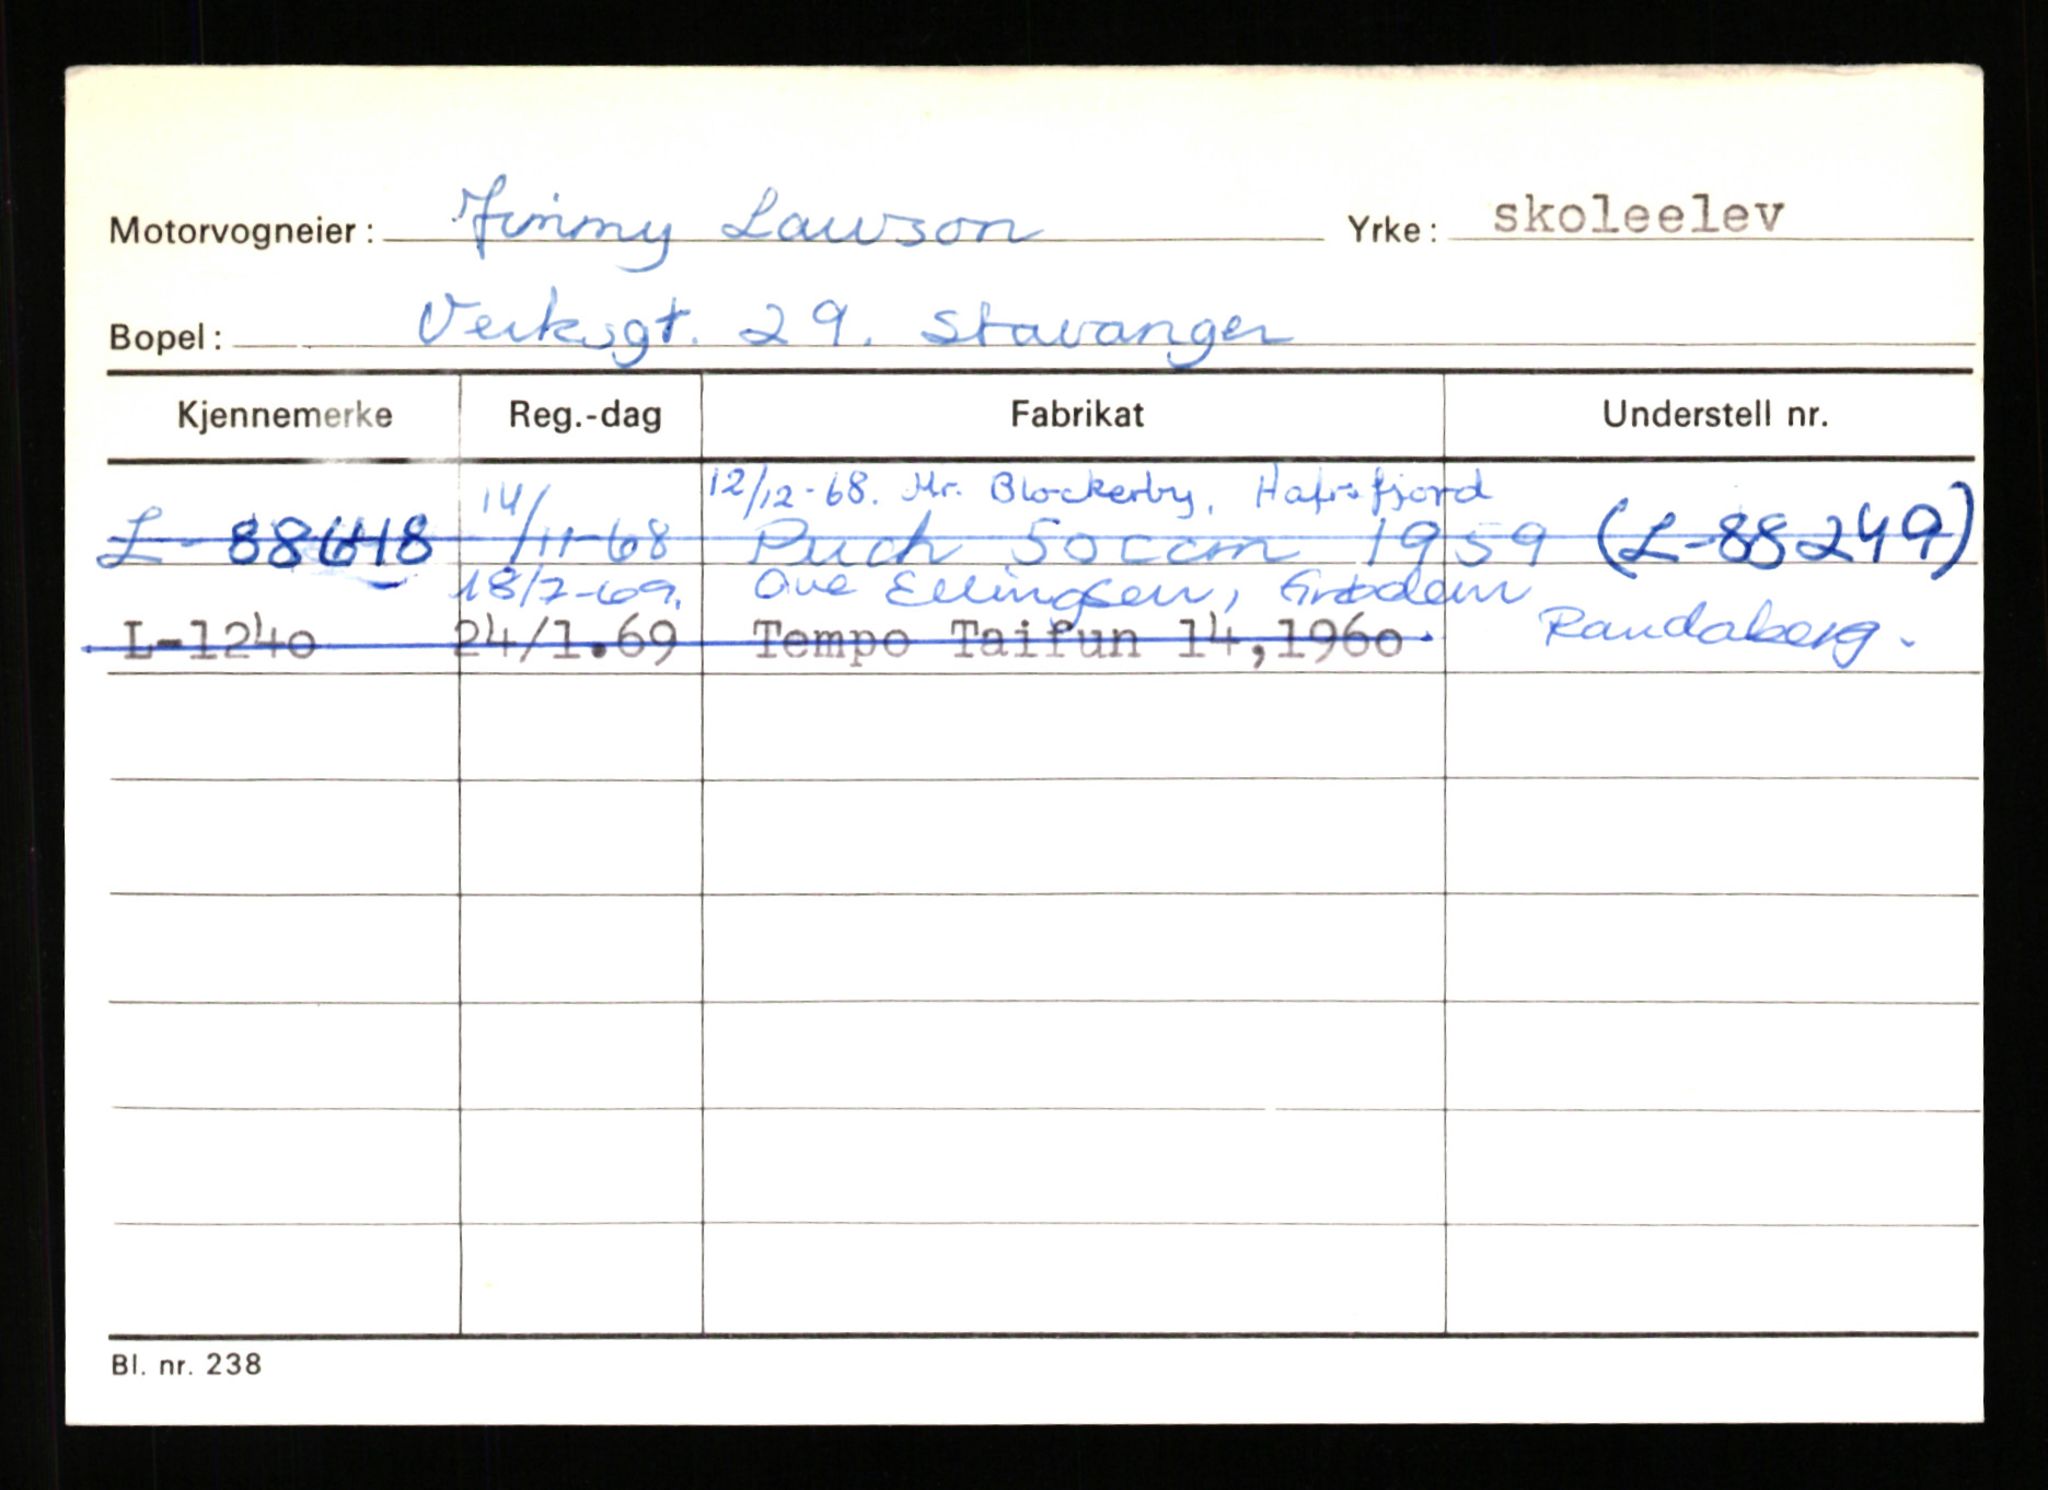 Motorvogneier: Jimmy Lawson Yrke: skoleelev
Bopel: Verksgt. 29. Stavanger
Kjennemerke Reg.-dag Fabrikat Understell nr.
12/12-68. Mr. Blockerby, Hafrsfjord
L- 88648 14/11-68 Puch 50 ccm 1959 (L-88249)
18/7-69. Ove Ellingsen, Grødem
Randaberg.
L-1240 24/1.69 Tempo Taifun 14,1960
Bl. nr. 238